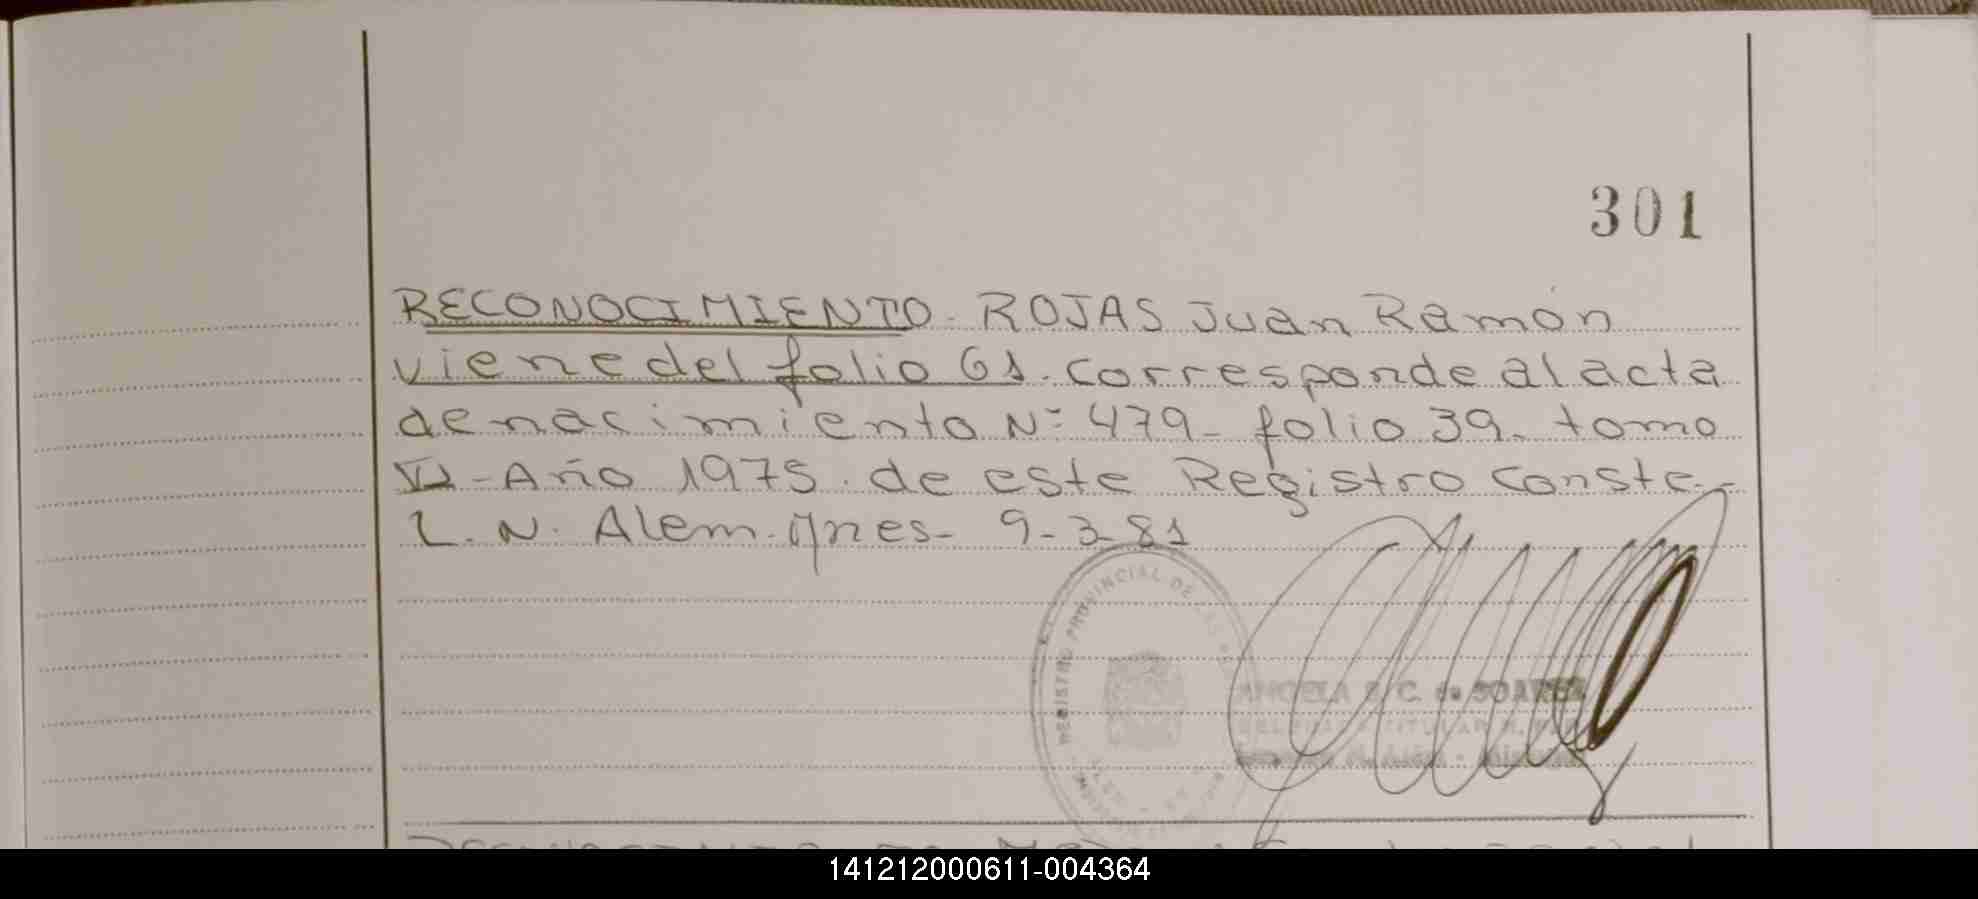 301
RECONOCIMIENTO - ROJAS Juan Ramón
viene del folio 61. Corresponde al acta
de nacimiento Nº 479 - folio 39. tomo
VI - Año 1975. de este Registro Conste.-
L. N. Alem. Mnes - 9-3-81
REGISTRO PROVINCIAL DE LAS
ANGELA C. de SOAREZ
TITULAR
141212000611-004364